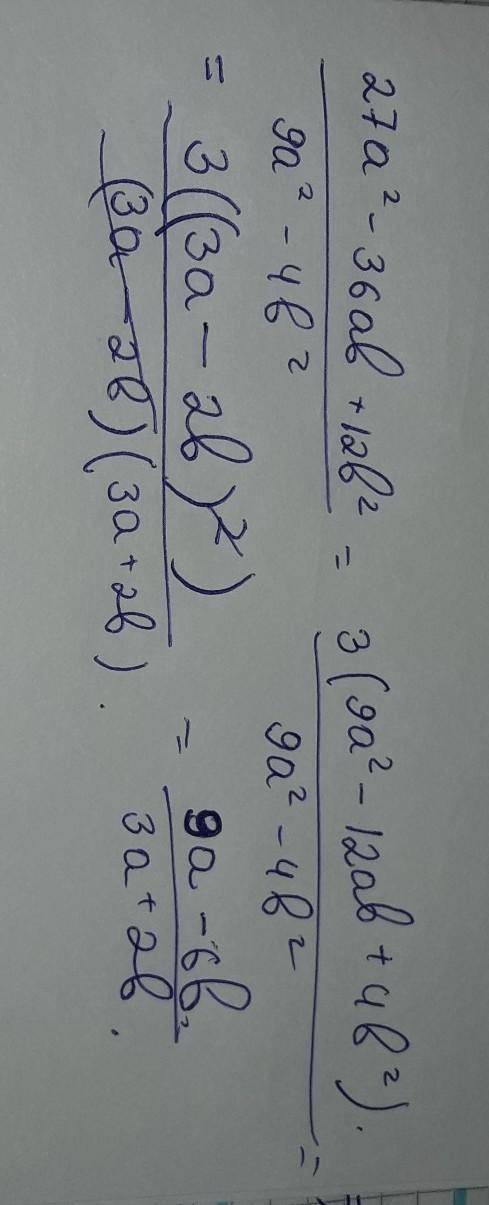 27a² - 36ab + 12b² / 9a² - 4b² = 3(9a² - 12ab + 4b²). / 9a² - 4b² =
= 3((3a - 2b)²) / (3a - 2b)(3a + 2b). = 9a - 6b² / 3a + 2b.